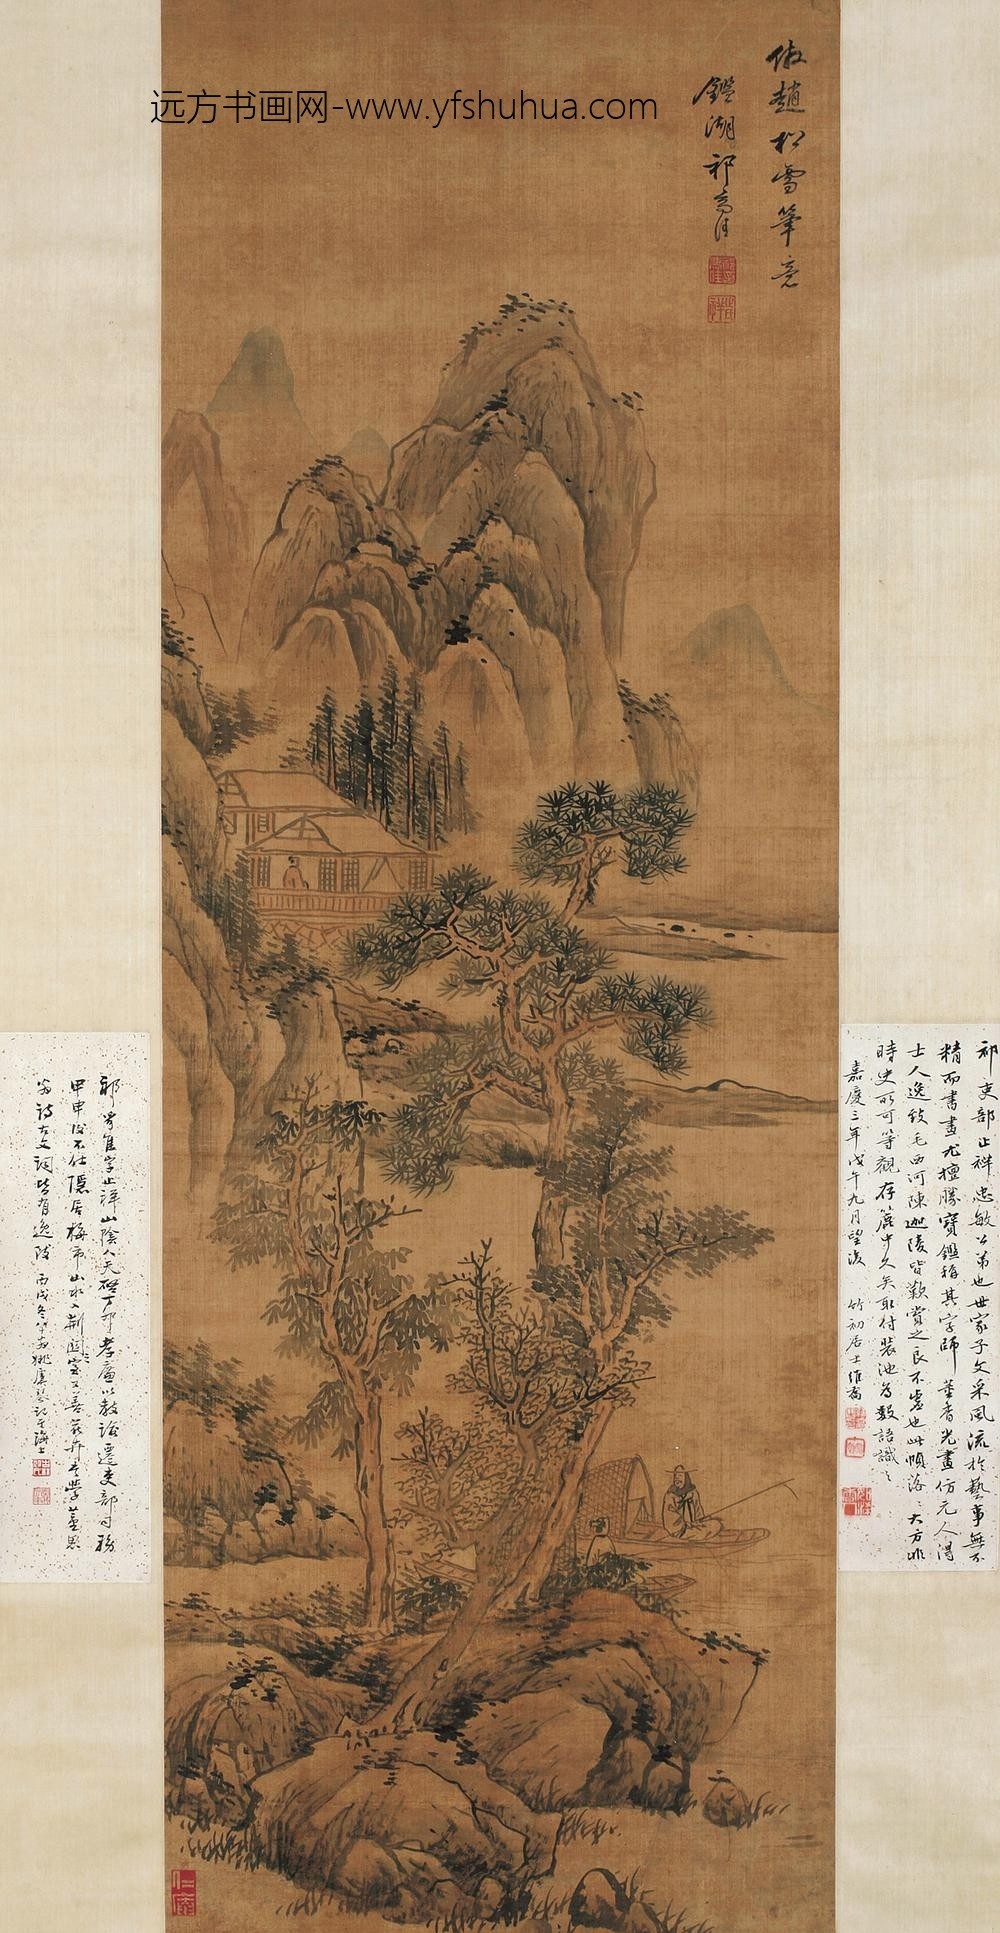 远方书画网-www.yfshuhua.com
倣趙松雪筆意
鑑湖祁豸佳
祁吏部止祥忠敏公弟也世家子文采風流於藝事無不
精而書畫尤擅勝寶鑑稱其字師董香光畫仿元人得
士人逸致毛西河陳迦陵皆歎賞之良不虛也此幀落落大方非
時史所可等觀存篋中久矣取付裝池為數語識之
嘉慶三年戊午九月望後 竹初居士維喬
祁豸佳字止祥山陰人天啓丁卯孝廉以教諭遷吏部司務
甲申後不仕隱居梅市山水入荊關室又善花卉
詩古文詞皆有逸致 丙戌冬 姚虞琴記